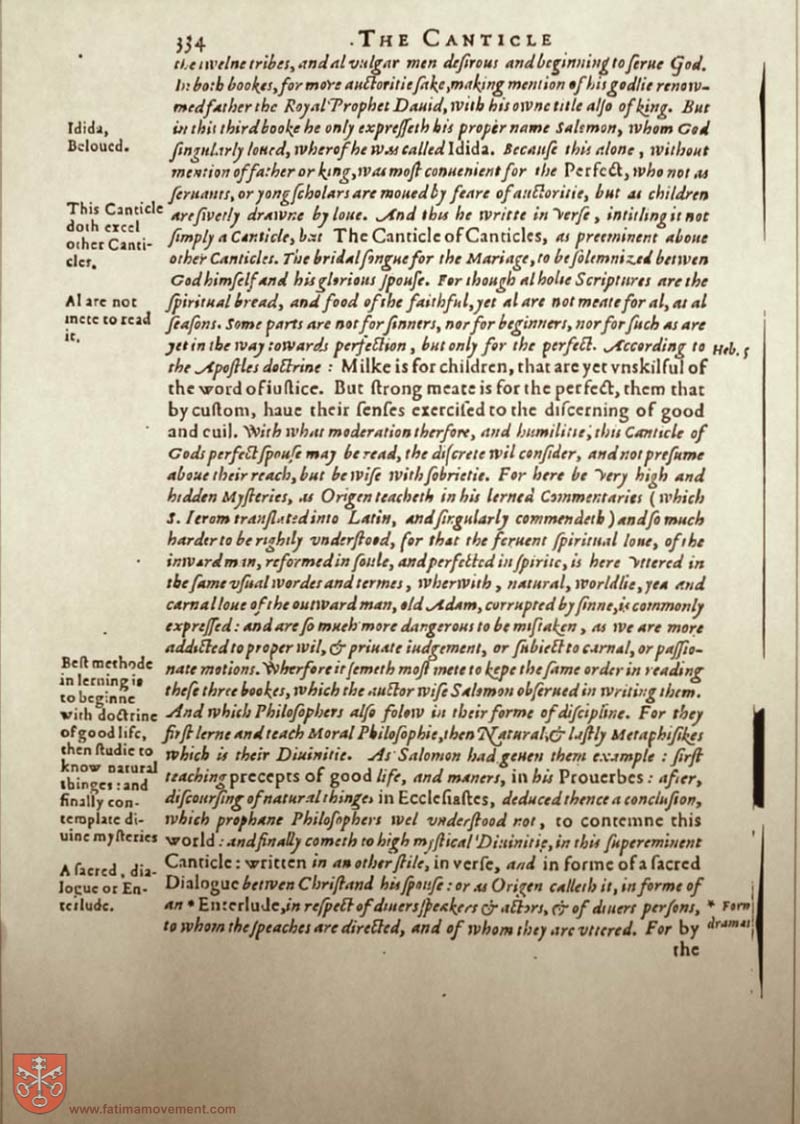 334
THE CANTICLE
the twelue tribes, and al vulgar men desirous and beginning to serue God.
In both bookes, for more auctoritie sake, making mention of his godlie renow-
med father the Royal Prophet Dauid, with his owne title also of king. But
Idida,
Beloued.
in this third booke he only expresseth his proper name Salomon, whom God
singularly loued, wherof he was called Idida. Because this alone, without
mention of father or king, was most conuenient for the Perfect, who not as
seruants, or yong scholars are moued by feare of auctoritie, but as children
This Canticle
doth excel
other Canti-
cles.
are swetly drawne by loue. And this he writte in verse, intitling it not
simply a Canticle, but The Canticle of Canticles, as preeminent aboue
other Canticles. The bridal songue for the Mariage, to be solemnized betwen
God himself and his glorious spouse. For though al holie Scriptures are the
Al are not
mete to read
it.
spiritual bread, and food of the faithful, yet al are not meate for al, at al
seasons. Some parts are not for sinners, nor for beginners, nor for such as are
yet in the way towards perfection, but only for the perfect. According to
Heb. 5
the Apostles doctrine: Milke is for children, that are yet vnskilful of
the word of iustice. But strong meate is for the perfect, them that
by custom, haue their senses exercised to the discerning of good
and euil. With what moderation therfore, and humilitie, this Canticle of
Gods perfect spouse may be read, the discrete wil consider, and not presume
aboue their reach, but be wise with sobrietie. For here be very high and
hidden Mysteries, as Origen teacheth in his lerned Commentaries (which
S. Ierom translated into Latin, and singularly commendeth) and so much
harder to be rightly vnderstood, for that the feruent spiritual loue, of the
inward man, reformed in soule, and perfected in spirite, is here vttered in
the same vsual wordes and termes, wherwith, natural, worldlie, yea and
carnal loue of the outward man, old Adam, corrupted by sinne, is commonly
expressed: and are so much more dangerous to be mistaken, as we are more
addicted to proper wil, & priuate iudgement, or subiect to carnal, or passio-
Best methode
in lerning is
to beginne
with doctrine
of good life,
then studie to
know natural
thinges: and
finally con-
template di-
uine mysteries
nate motions. Wherfore it semeth most mete to kepe the same order in reading
these three bookes, which the auctor wise Salomon obserued in writing them.
And which Philosophers also folow in their forme of discipline. For they
first lerne and teach Moral Philosophie, then Natural, & lastly Metaphisikes
which is their Diuinitie. As Salomon had geuen them example: first
teaching precepts of good life, and maners, in his Prouerbes: after,
discoursing of natural thinges in Ecclesiastes, deduced thence a conclusion,
which prophane Philosophers wel vnderstood not, to contemne this
world: and finally cometh to high mystical Diuinitie, in this supereminent
Canticle: written in an other stile, in verse, and in forme of a sacred
A sacred, dia-
logue or En-
terlude.
Dialogue betwen Christ and his spouse: or as Origen calleth it, in forme of
an * Enterlude, in respect of diuers speakers & actors, & of diuers persons,
* Form
dramat
to whom the speaches are directed, and of whom they are vttered. For by
the
www.fatimamovement.com